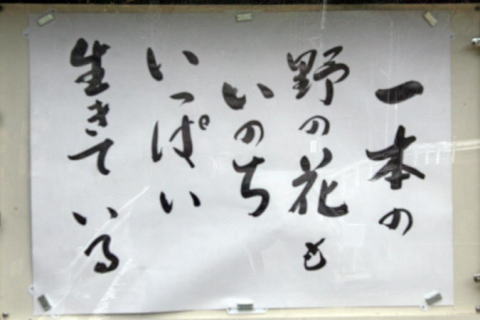 一本の
野の花も
いのち
いっぱい
生きている